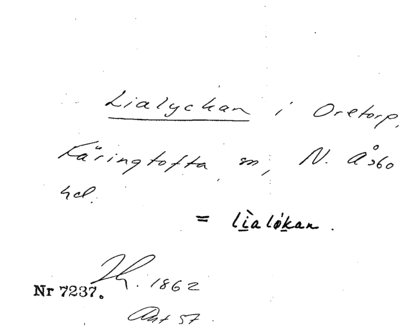 Lialyckan i Oretorp,
Färingtofta sn, N. Åsbo
hd.
= lìalókan.
Nr 7237. 1862
Ant 57.